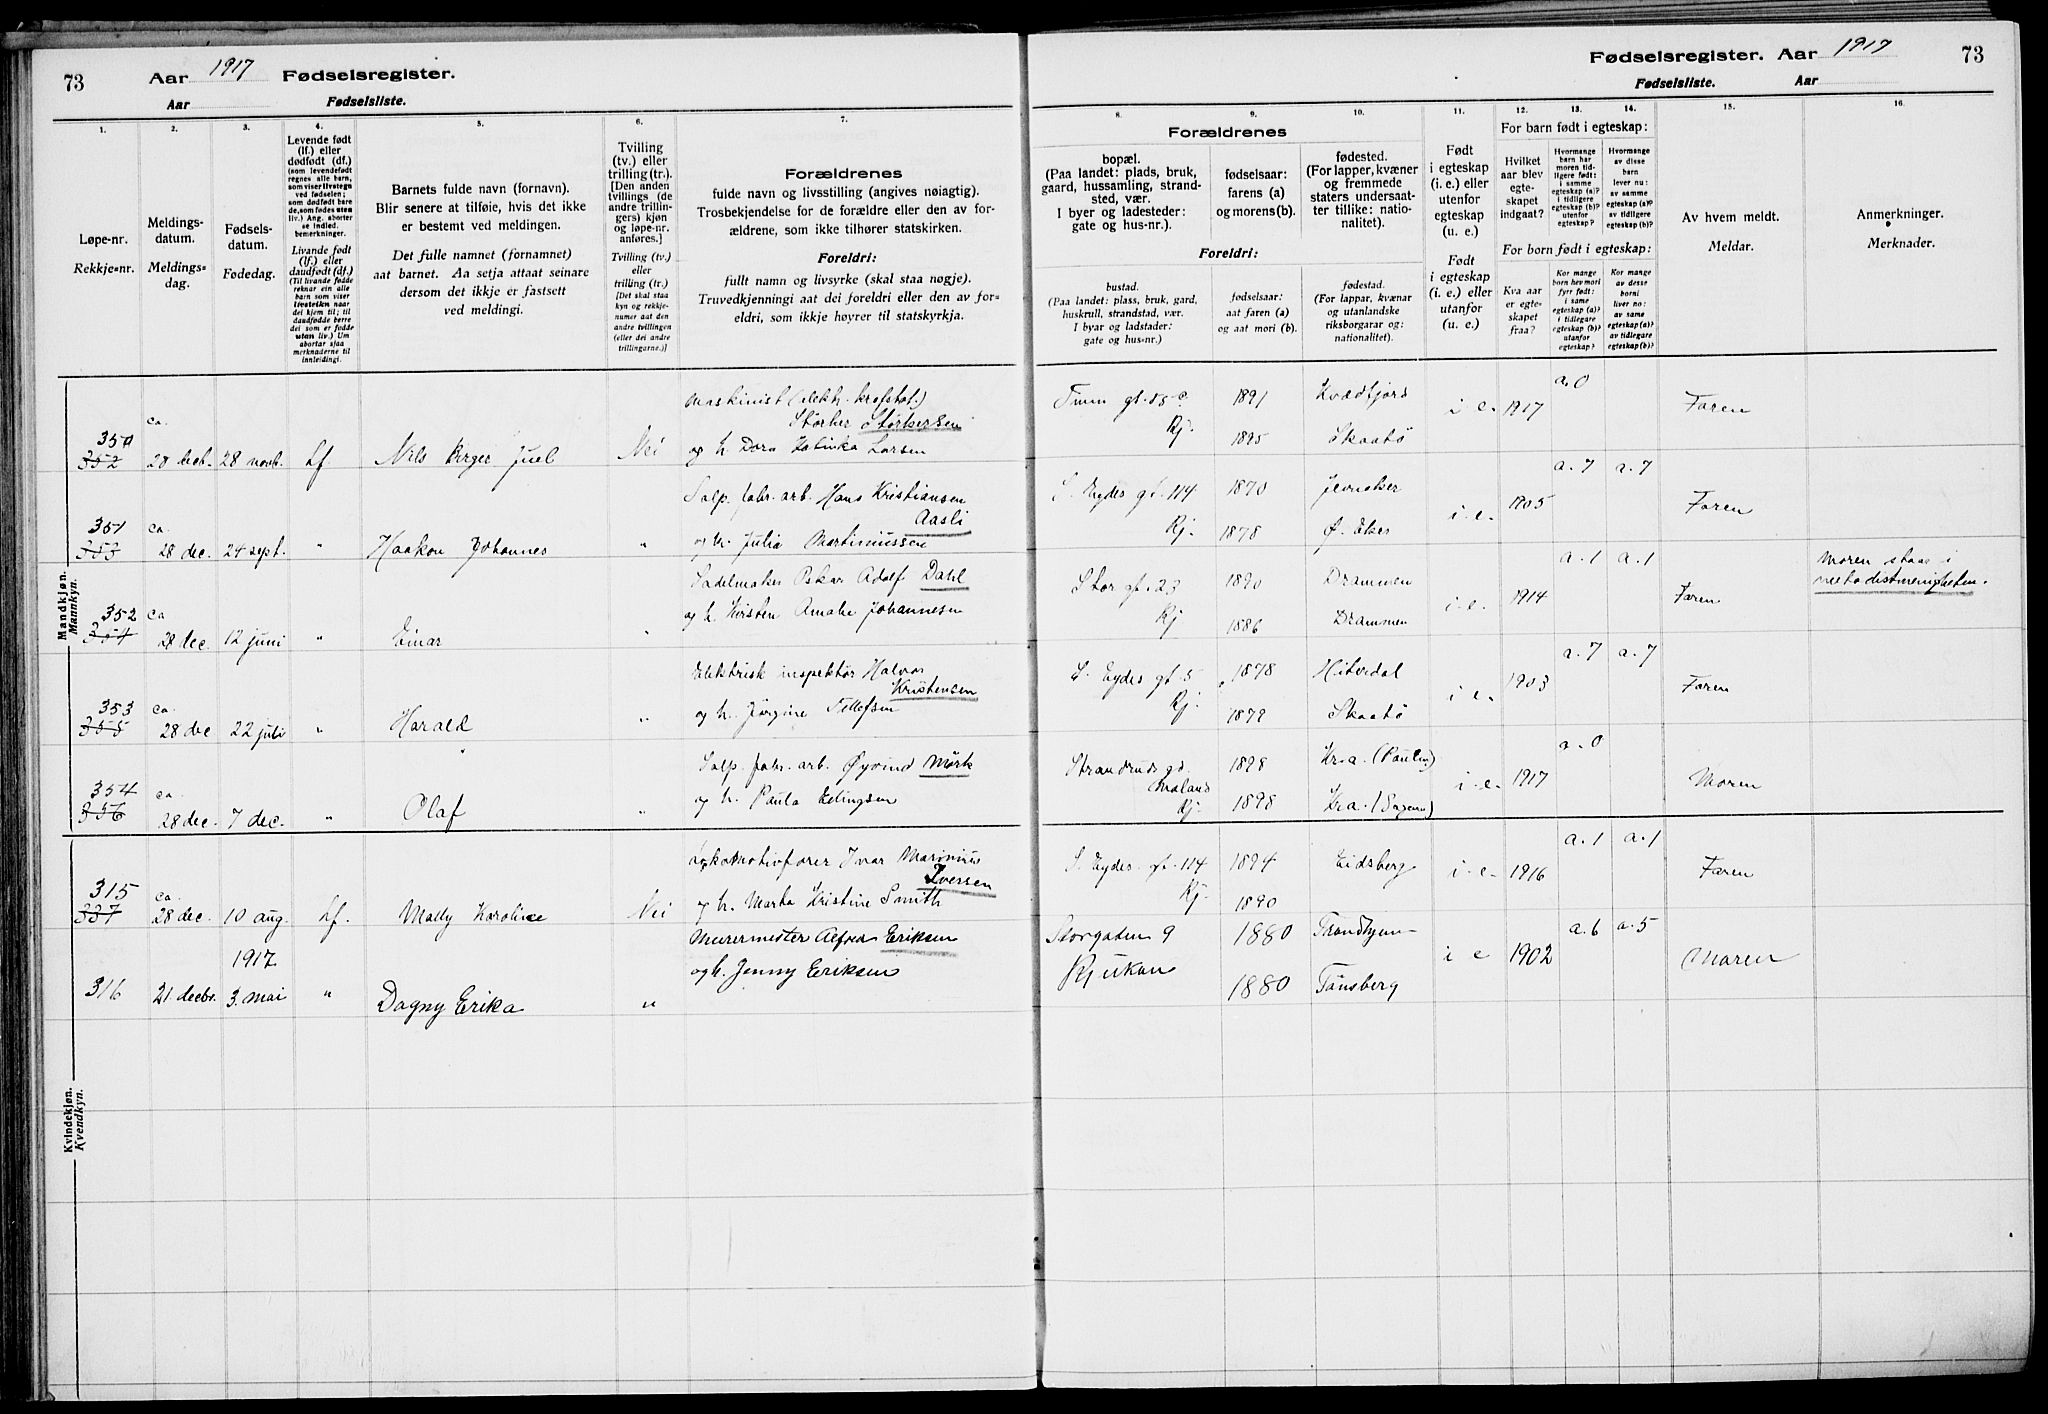 73 Aar 1917 Fødselsregister.
Aar Fødselsliste.
1. 2. 3. 4. 5. 6. 7.
Løpe-nr.
Rekkje-nr.
Meldings-
datum.
Meldings-
dag.
Fødsels-
datum.
Fødedag.
Levende født
(lf.) eller
dødfødt (df.)
(som levendefødt
regnes alle barn,
som viser livstegn
ved fødselen;
som dødfødt bare
de, som fødes uten
liv.) Ang. aborter
se indled.
bemerkninger.
Livande født
(lf.) eller
daudfødt (df.)
(Til livande fødde
reknar ein alle
barn som viser
livsteikn naar
dei kjem til; til
daudfødde berre
dei som er fødde
utan liv.) Um
abortar sjaa
merknaderne til
innleidingi.
Barnets fulde navn (fornavn).
Blir senere at tilføie, hvis det ikke
er bestemt ved meldingen.
Det fulle namnet (fornamnet)
aat barnet. Aa setja attaat seinare
dersom det ikkje er fastsett
ved meldingi.
Tvilling
(tv.) eller
trilling (tr.).
[Den anden
tvillings (de
andre trillin-
gers) kjøn
og løpe-nr.
anføres.]
Tvilling (tv.)
eller
trilling (tr.)
[Det skal staa
kyn og rekkje-
numer aat den
andre tvillingen
(eller dei andre
trillingarne.)]
Forældrenes
fulde navn og livsstilling (angives nøiagtig).
Trosbekjendelse for de forældre eller den av for-
ældrene, som ikke tilhører statskirken.
Foreldri:
fullt namn og livsyrke (skal staa nøgje).
Truvedkjenningi aat dei foreldri eller den av for-
eldri, som ikkje høyrer til statskyrkja.
Mandkjøn.
Mannkyn.
maskinist (elektr. krafstat.)
Størker Størkersen
350 ca.
352 28 decb. 28 novb. Lf Nils Birger Juel Nei og h. Dora Katinka Larsen
Salp. fabr. arb. Hans Kristiansen
Aasli
351 ca.
353 28 dec. 24 sept. " Haakon Johannes " og h. Julia Martinussen
Sadelmaker Oskar Adolf Dahl
352 ca
354 28 dec. 12 juni " Einar " og h. Kirsten Amalie Johannesen
Elektrisk inspektør Halvor
Kristensen
353 ca.
355 28 dec 22 juli " Harald " og h. Jørgine Tellefsen
Salp. fabr. arb. Øyvind Mørk
354 ca.
356 28 dec. 7 dec. " Olaf " og h. Paula Edingsen
Kvindekjøn.
Kvendkyn.
Lokomotivfører Ivar Marinius
Iversen
315 ca.
337 28 dec. 10 aug. Lf. Mally Karoline Nei og h. Marta Kristine Smith
Murermester Alfred Eriksen
1917
316 21. decbr. 3. mai " Dagny Erika " og h. Jenny Eriksen
Fødselsregister. Aar 1917 73
Fødselsliste. Aar
8. 9. 10. 11. 12. 13. 14. 15. 16.
Forældrenes
bopæl.
(Paa landet: plads, bruk,
gaard, hussamling, strand-
sted, vær.
I byer og ladesteder:
gate og hus-nr.).
fødselsaar:
farens (a)
og morens (b).
fødested.
(For lapper, kvæner
og fremmede
staters undersaat-
ter tillike: natio-
nalitet).
Foreldri:
bustad.
(Paa landet: plass, bruk, gard,
huskrull, strandstad, vær.
I byar og ladstader:
gate og hus-nr.)
fødselsaar:
aat faren (a)
og aat mori (b).
fødestad.
(For lappar, kvænar
og utanlandske
riksborgarar og:
nationalitet).
Født
i egteskap
(i. e.) eller
utenfor
egteskap
(u. e.)
Født
i egteskap
(i. e.) eller
utanfor
(u. e.)
For barn født i egteskap:
Hvilket
aar blev
egte-
skapet
indgaat?
Hvormange
barn har
moren tid-
ligere født:
i samme
egteskap (a)?
i tidligere
egteskap (b)?
utenfor
egteskap?
Hvormange
av disse
barn
lever nu:
av samme
egteskap (a)?
av tidligere
egteskap (b)?
For born født i egteskap:
Kva aar
er egte-
skapet
fraa?
Kor mange
barn hev mori
fyrr født:
i same
egteskap (a)?
i tidlegare
egteskap (b)?
utanfor
egteskap?
Kor mange
av desse
borni
liver no:
av same
egteskap (a)?
av tidlegare
egteskap (b)?
Av hvem meldt.
Meldar.
Anmerkninger.
Merknader.
Tinn gt. 38 c 1891 Kvædfjord i e. 1917 a. 0 Faren
Rj. 1895 Skaatø
S. Eydes gt. 114 1870 Jevnaker i. e. 1905 a. 7 a. 7 Faren
Rj. 1878 Ø. Eker
Stor gt. 23 1890 Drammen i. e. 1914 a. 1 a. 1 Faren Moren staar i
metodistmenigheten.
Rj 1886 Drammen
S. Eydes gt. 5 1878 Hitterdal i e. 1903 a. 7 a. 7 Faren
Rj. 1879 Skaatø
Strandrud gd. 1898 Kr.a. (Paulus) i e. 1917 a. 0 Moren
Maland
Rj. 1898 Kra.
S. Eydes gt. 114 1894 Eidsberg i e. 1916 a. 1 a. 1 Faren
Rj. 1890
Storgaten 9 1880 Trondhjem i e 1902 a. 6 a. 5 Moren
Rjukan 1880 Tønsberg